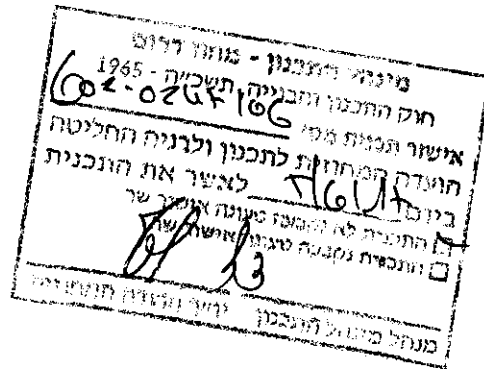 מינהל התכנון - מחוז דרום
חוק התכנון והבנייה, תשכ"ה - 1965
אישור תכנית מס׳
הועדה המחוזית לתכנון ולבניה החליטה
ביום לאשר את התכנית
התכנית לא נקבעה טעונה אישור שר
התכנית נקבעה טעונה אישור שר
מנהל מינהל התכנון יו"ר הועדה המחוזית